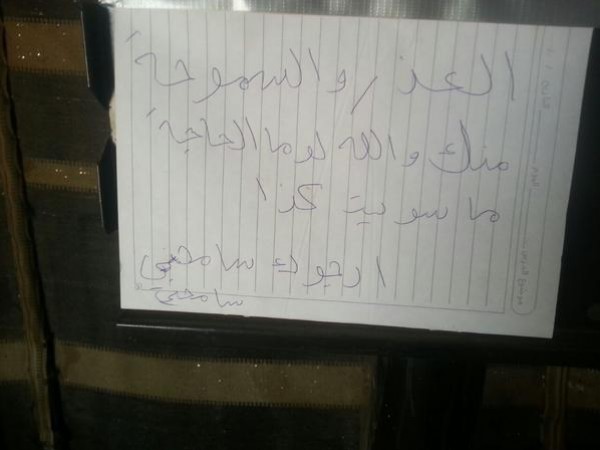 العذر والسموحة
منك والله لوما الحاجة
ما سويت كذا
ارجوك سامحني
سامحني